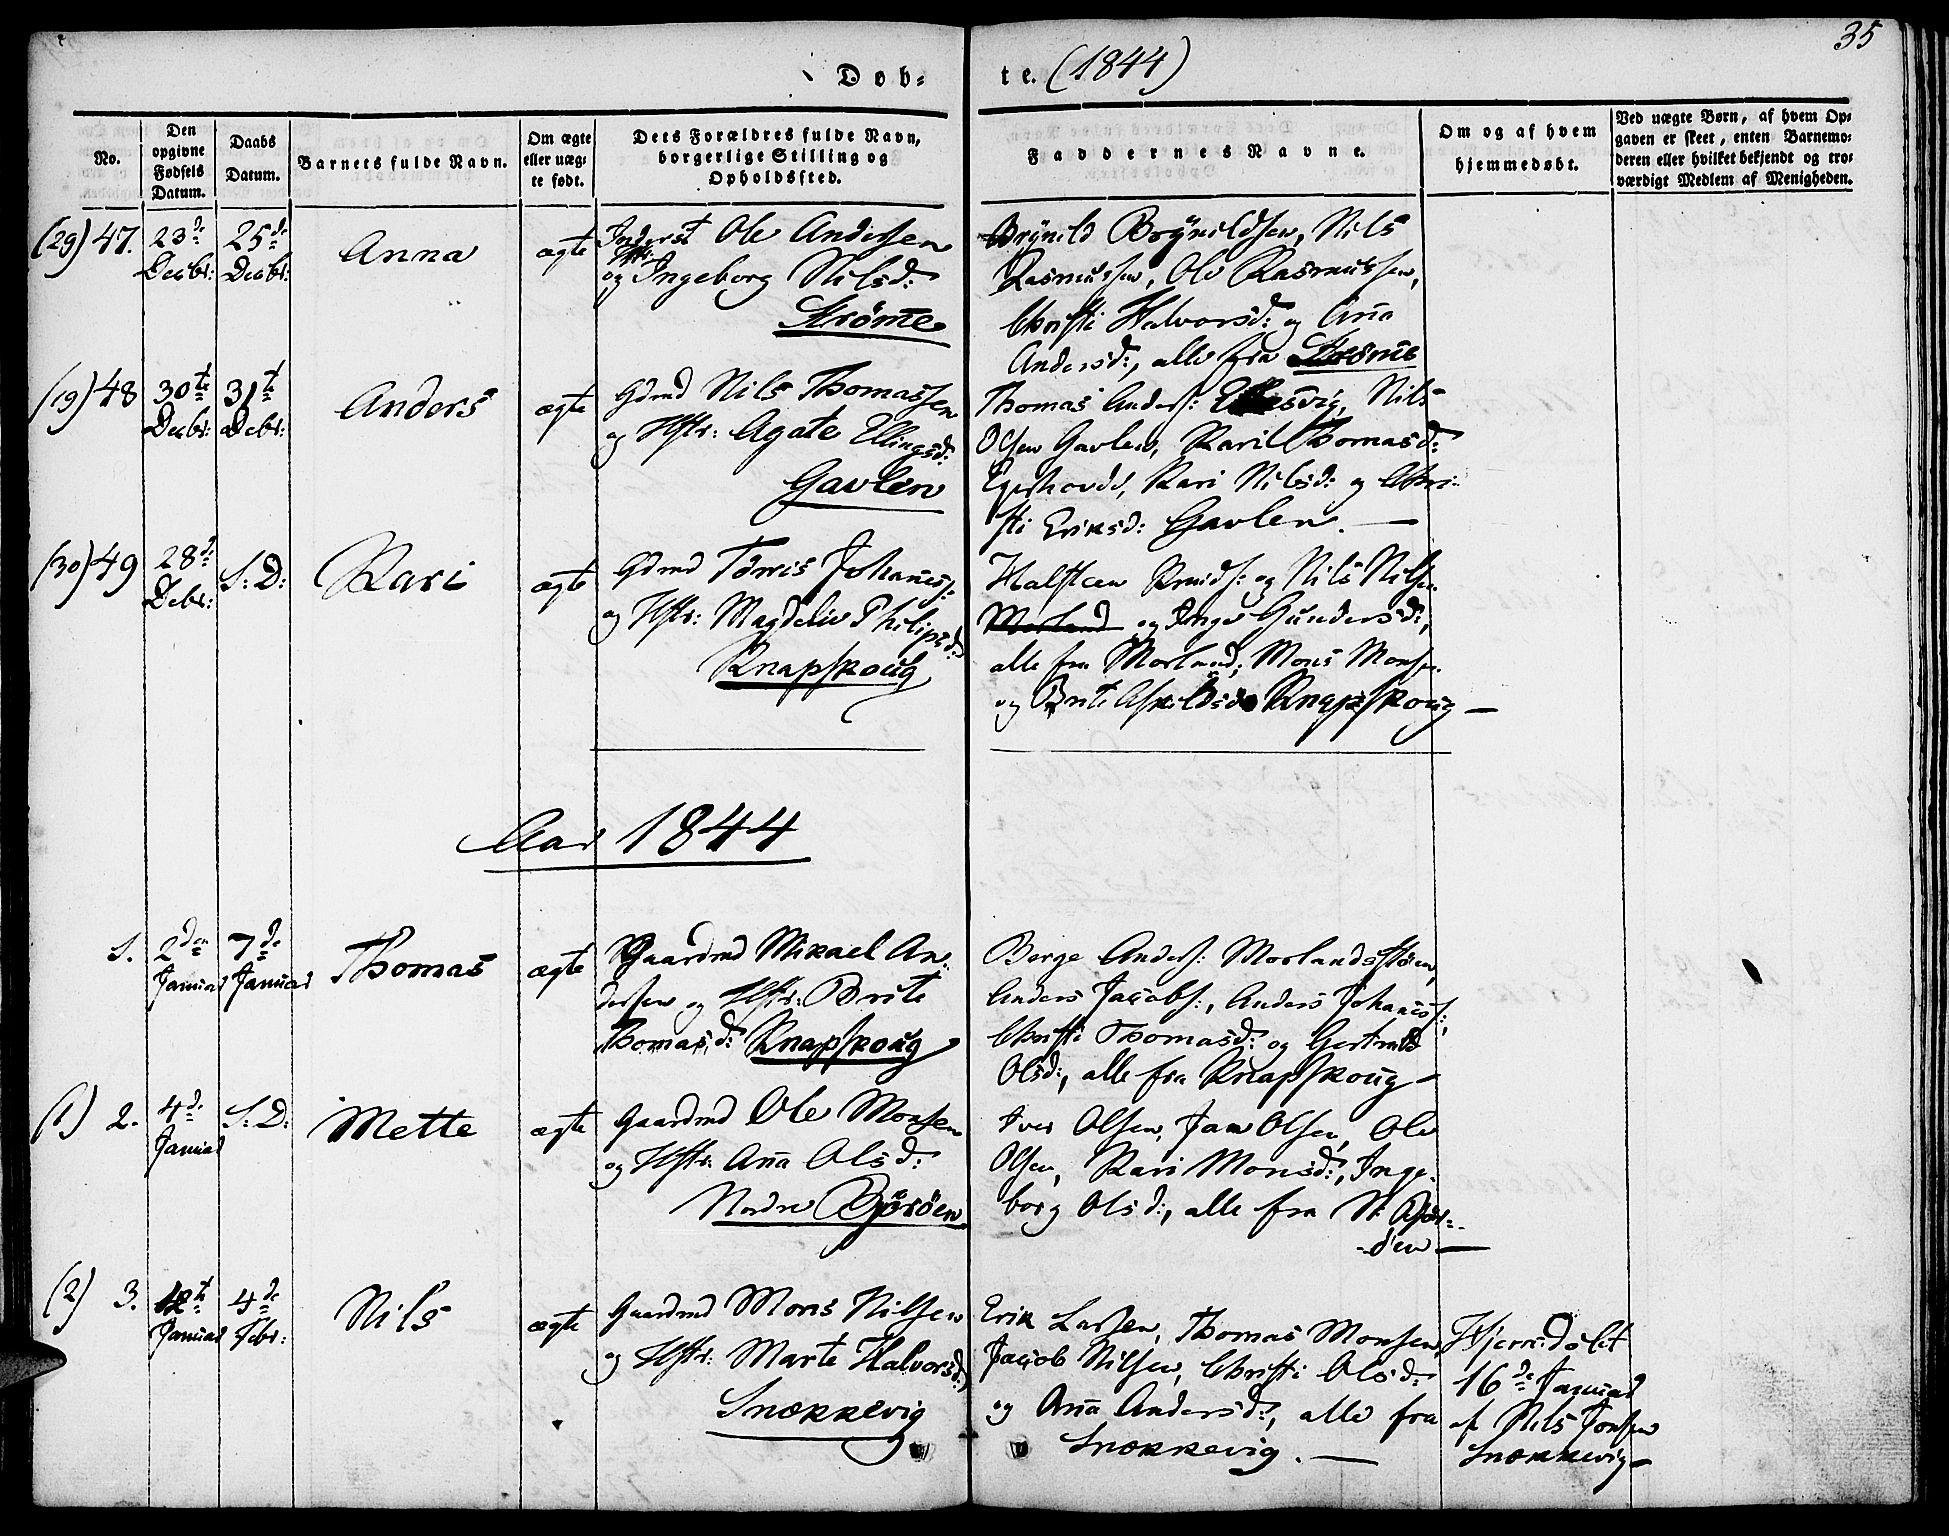 35
Døb-
te. (1844)
No.
Den opgivne Fødsels Datum.
Daabs Datum.
Barnets fulde Navn.
Om ægte eller uægte født.
Dets Forældres fulde Navn, borgerlige Stilling og Opholdssted.
Faddernes Navne.
Om og af hvem hjemmedøbt.
Ved uægte Børn, af hvem Opgaven er skeet, enten Barnemoderen eller hvilket bekjendt og troværdigt Medlem af Menigheden.
(29) 47.
23de Decbr:
25de Decbr:
Anna
ægte
Inderst Ole Andersen
og Hstr: Ingeborg Nilsd:
Strømme
Brynild Brynildsen, Nils
Rasmussen, Ole Rasmussen,
Christi Halvorsd: og Anna
Andersd:, alle fra Strømme
(19) 48
30te Decbr:
31te Debr:
Anders
ægte
Gdmd Nils Thomassen
og Hstr: Agate Ellingsd:
Gavlen
Thomas Anders: Nils
Olsen Gavlen, Karil Thomasd:
Kari Nilsd: og Chri-
sti Eriksd: Gavlen.
(30) 49
28de Debr:
S: D:
Kari
ægte
Gdmd Tørris Johannes:
og Hstr: Magdeliv Philipsd:
Knapskoug
Halsteen Knuds: og Nils Nilsen
Morland og Inger Gundersd:,
alle fra Morland; Mons Monsen
og Brite Askildsd: Knapskoug
Aar 1844
1.
2den Januar
7de Januar
Thomas
ægte
Gaardmd Mikael An-
dersen og Hstr: Brite
Thomasd: Knapskoug
Berge Anders: Morlandstøen,
Anders Jacobs:, Anders Johannes:,
Christi Thomasd: og Gertrud
Olsd:, alle fra Knapskoug
(1) 2.
4de Januar
S: D:
Mette
ægte
Gaardmd Ole Monsen
og Hstr: Anna Olsd:
Nordre Bjørøen
Iver Olsen, Jan Olsen, Ole
Olsen, Kari Monsd:, Inge-
borg Olsd:, alle fra N: Bjør-
øen
(2) 3.
12te Januar
4de Febr:
Nils
ægte
Gaardmd Mons Nilsen
og Hstr: Marte Halvorsd:
Snekkevig
Erik Larsen, Thomas Monsen,
Jacob Nilsen, Christi Olsd:
og Anna Andersd:, alle fra
Snekkevig.
Hjemmedøbt
16de Januar
af Nils Jonsen
Snekkevig